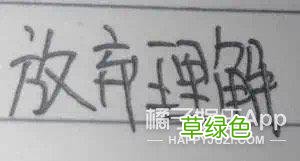 放弃理解
橘子娱乐App
草绿色
HAPPYJUZI.COM